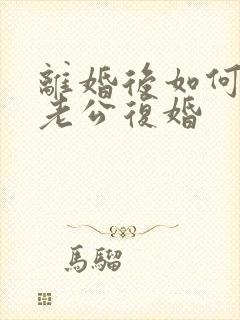 離婚後如何
老公復婚
馬騮